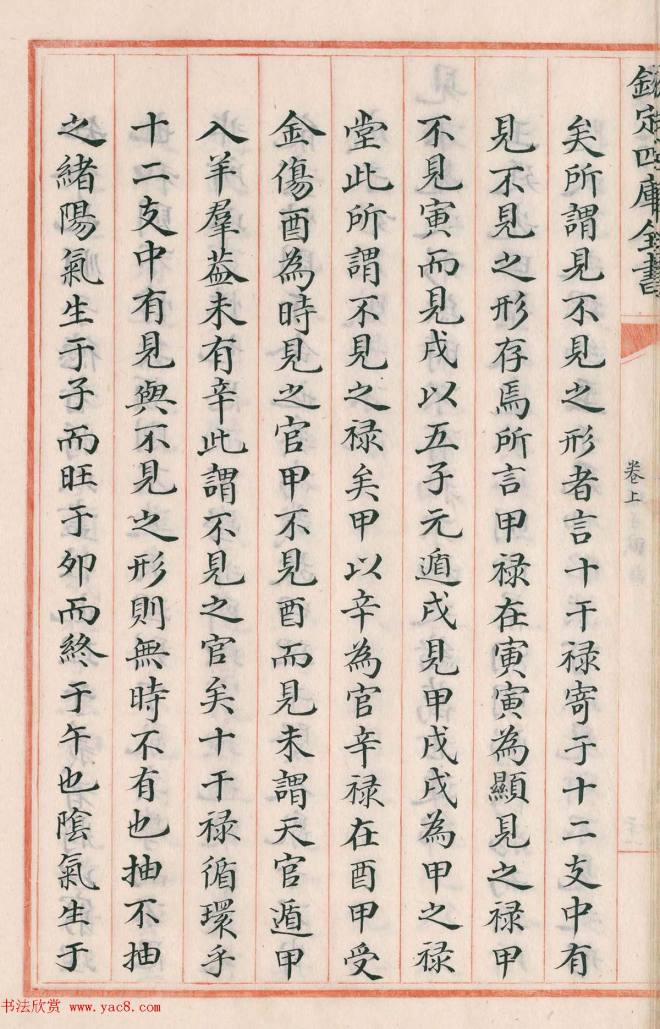 欽定四庫全書
卷上
矣所謂見不見之形者言十干禄寄于十二支中有
見不見之形存焉所言甲禄在寅寅為顯見之禄甲
不見寅而見戌以五子元遁戌見甲戌戌為甲之禄
堂此所謂不見之禄矣甲以辛為官辛禄在酉甲受
金傷酉為時見之官甲不見酉而見未謂天官遁甲
入羊羣葢未有辛此謂不見之官矣十干禄循環乎
十二支中有見與不見之形則無時不有也抽不抽
之緒陽氣生于子而旺于夘而終于午也陰氣生于
书法欣赏 www.yac8.com